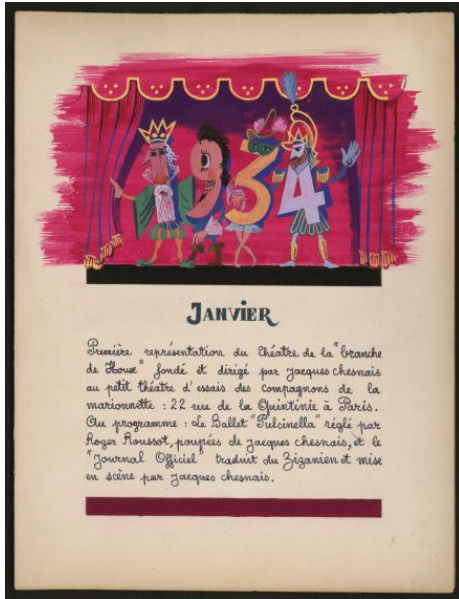 1934
JANVIER
Première représentation du théâtre de la "branche
de Houx" fondé et dirigé par jacques chesnais
au petit théâtre d'essais des compagnons de la
marionnette : 22 rue de la Quintinie à Paris.
Au programme : Le Ballet "Pulcinella" réglé par
Roger Roussot, poupées de jacques chesnais, et le
"Journal Officiel" traduit du Zizanien et mise
en scène par jacques chesnais.